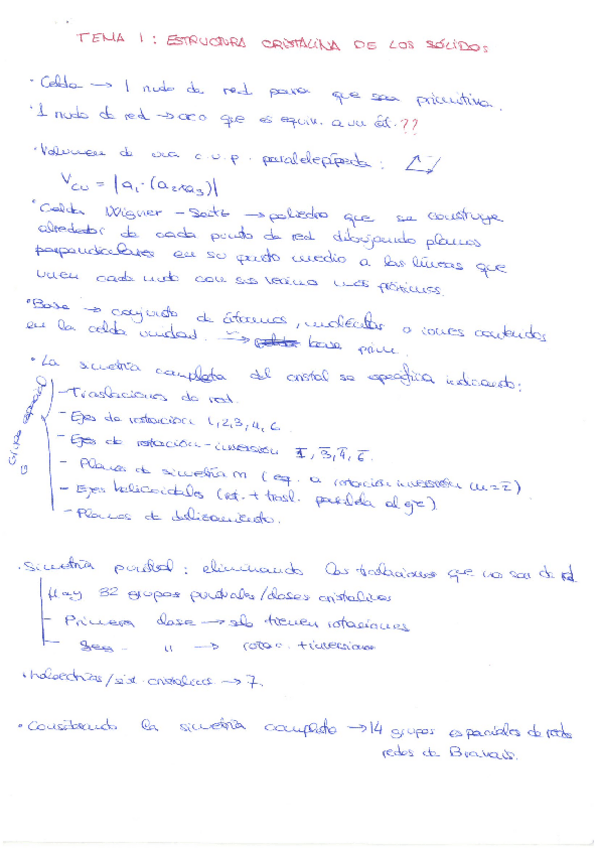 TEMA 1: ESTRUCTURA CRISTALINA DE LOS SÓLIDOS
· Celda → 1 nudo de red para que sea primitiva.
· 1 nudo de red → que es equiv. a un át.??
· Volumen de una c.u.p. paralelepípeda:
Vcu = |a₁·(a₂×a₃)|
· Celda Wigner-Seitz → poliedro que se construye
alrededor de cada punto de red dibujando planos
perpendiculares en su punto medio a las líneas que
unen cada nudo con sus vecinos más próximos.
· Base → conjunto de átomos, moléculas o iones contenidos
en la celda unidad. → base prim.
· La simetría completa del cristal se especifica indicando:
Grupo espacial
- Traslaciones de red.
- Ejes de rotación 1,2,3,4,6.
- Ejes de rotación-inversión 1̄, 3̄, 4̄, 6̄.
- Planos de simetría m (eq. a rotación inversión m=2̄)
- Ejes helicoidales (rot. + trasl. paralela al eje)
- Planos de deslizamiento.
· Simetría puntual: eliminando las traslaciones que no son de red
Hay 32 grupos puntuales/clases cristalinas
- Primera clase → sólo tienen rotaciones
- Seg. " → rotac. + inversiones
· holoedrías/sist. cristalinos → 7.
· Considerando la simetría completa → 14 grupos espaciales de redes
redes de Bravais.